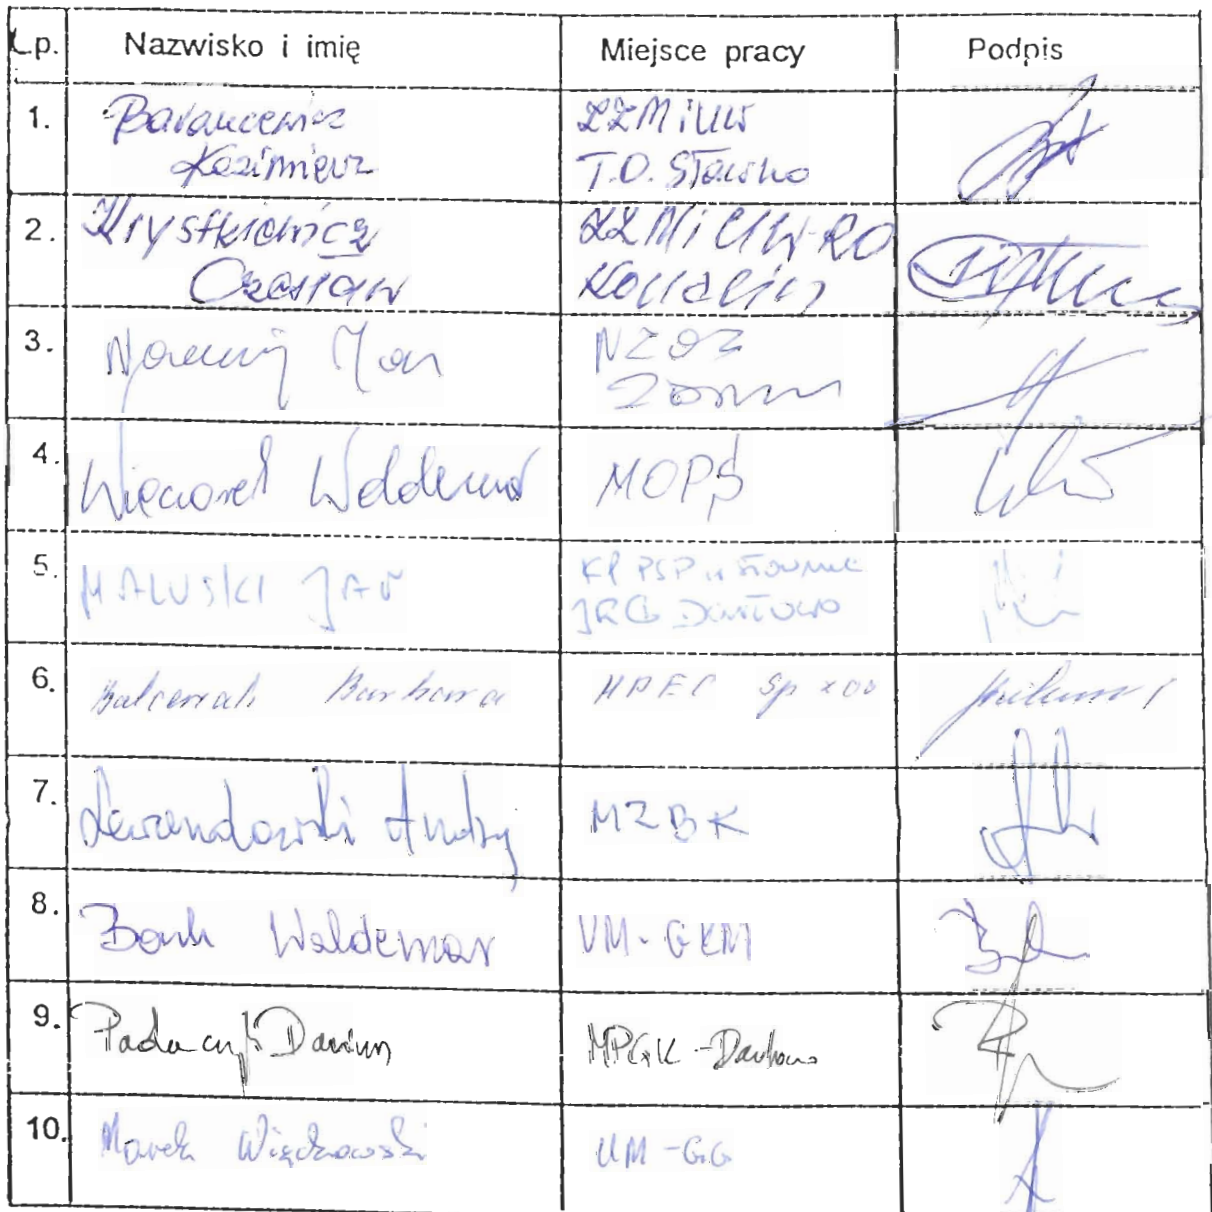 L.p. Nazwisko i imię Miejsce pracy Podpis
1. Barancewicz ZZMiUW
Kazimierz T.O. Sławno
2. Krystkiewicz ZZMiUW-RO
Czesław Koszalin
3. Jan NZOZ
4. Wieczorek Waldemar MOPS
5. MALUSKI JAN KP PSP w Sławnie
JRG Darłowo
6. Balcerzak Barbara MPEC Sp z oo
7. Lewandowski Andrzej MZBK
8. Bank Waldemar UM-GKM
9. Dariusz MPGK-Darłowo
10. Marek Więckowski UM-GG